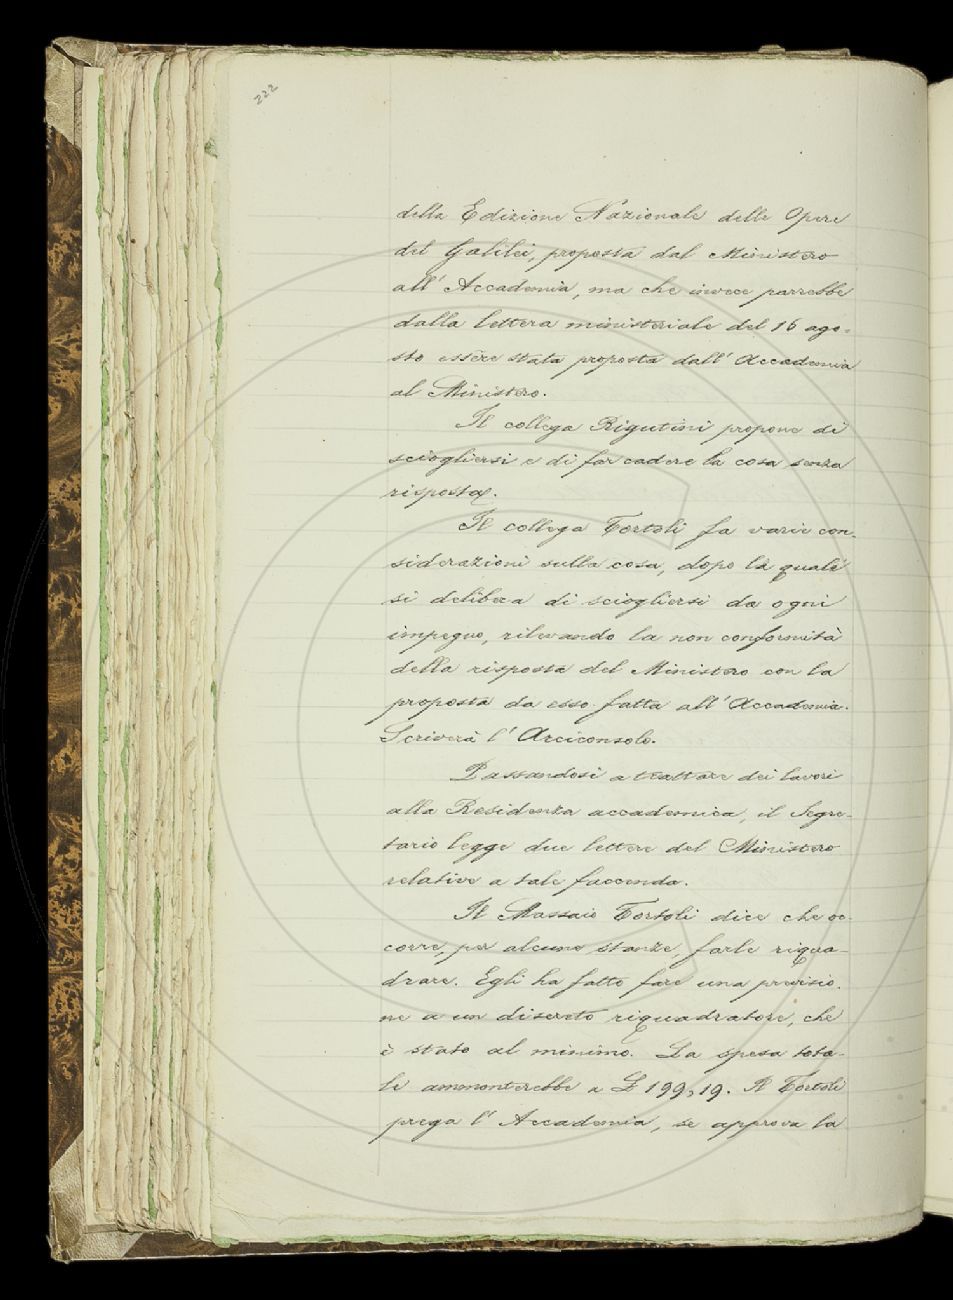 222
della Edizione Nazionale delle Opere
del Galilei, proposta dal Ministero
all'Accademia, ma che invece parrebbe
dalla lettera ministeriale del 16 ago-
sto essere stata proposta dall'Accademia
al Ministero.
Il collega Rigutini propone di
sciogliersi e di far cadere la cosa senza
risposta.
Il collega Tortoli fa varie con-
siderazioni sulla cosa, dopo le quali
si delibera di sciogliersi da ogni
impegno, rilevando la non conformità
della risposta del Ministero con la
proposta da esso fatta all'Accademia.
Scriverà l'Arciconsolo.
Passandosi a trattare dei lavori
alla Residenza accademica, il Segre-
tario legge due lettere del Ministero
relative a tale faccenda.
Il Massaio Tortoli dice che oc-
corre, per alcune stanze, farle riqua-
drare. Egli ha fatto fare una previsio-
ne a un discreto riquadratore, che
è stato al minimo. La spesa tota-
le ammonterebbe a £ 199,19. Il Tortoli
prega l'Accademia, se approva la